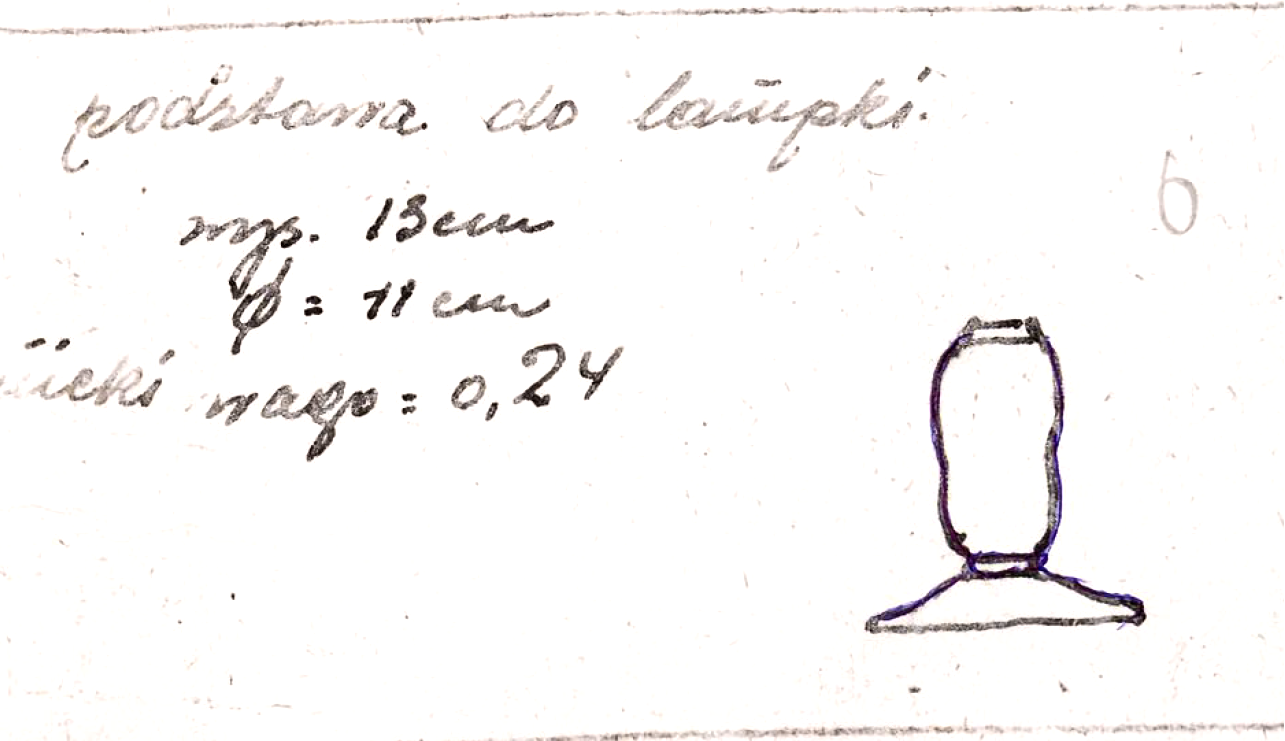 podstawa do lampki.
6
wys. 13 cm
ϕ = 11 cm
waga = 0,24